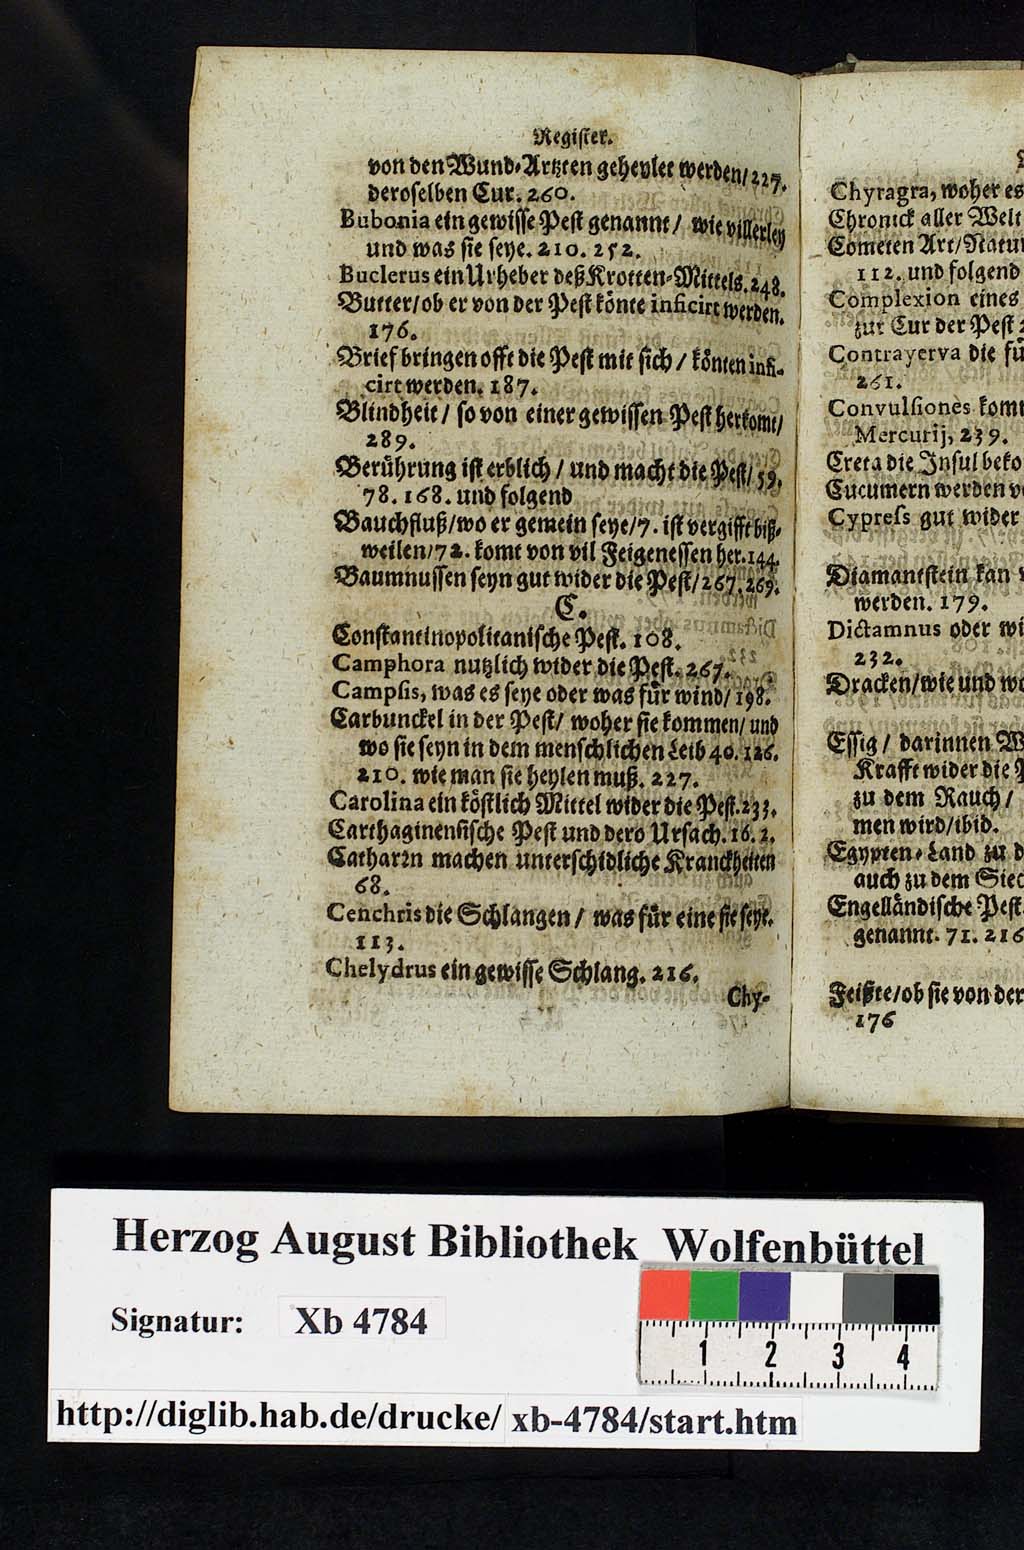 Register.
von den Wund-Artzten geheylet werden/227.
deroselben Cur. 260.
Bubonia ein gewisse Pest genannt / wie villerley
und was sie seye. 210. 252.
Buclerus ein Urheber deß Krotten-Mittels. 248.
Butter/ob er von der Pest könte inficirt werden.
176.
Brief bringen offt die Pest mit sich / könten infi-
cirt werden. 187.
Blindheit / so von einer gewissen Pest herkomt/
289.
Berührung ist erblich / und macht die Pest/ 59.
78. 168. und folgend
Bauchfluß/wo er gemein seye/7. ist vergifft biß-
weilen/72. komt von vil Feigenessen her.144.
Baumnussen seyn gut wider die Pest/267.269.
C.
Constantinopolitanische Pest. 108.
Camphora nutzlich wider die Pest. 267.
Campsis, was es seye oder was für wind/ 198.
Carbunckel in der Pest/ woher sie kommen/ und
wo sie seyn in dem menschlichen Leib 40. 126.
210. wie man sie heylen muß. 227.
Carolina ein köstlich Mittel wider die Pest.233.
Carthaginensische Pest und dero Ursach. 16. 2.
Catharın machen unterschidliche Kranckheiten
68.
Cenchris die Schlangen / was für eine sie seye.
113.
Chelydrus ein gewisse Schlang. 216.
Chy-
Chyragra, woher es
Chronick aller Welt
Cometen Art/Natur
112. und folgend
Complexion eines
zur Cur der Pest 2
Contrayerva die fü
261.
Convulsiones komt
Mercurij, 239.
Creta die Insul beko
Cucumern werden v
Cypress gut wider
Diamantstein kan
werden. 179.
Dictamnus oder wi
232.
Dracken/wie und wo
Essig / darinnen W
Krafft wider die P
zu dem Rauch /
men wird/ibid.
Egypten-Land zu d
auch zu dem Siec
Engelländische Pest
genannt. 71. 216
Feißte/ob sie von der
176
Herzog August Bibliothek Wolfenbüttel
Signatur: Xb 4784
1 2 3 4
http://diglib.hab.de/drucke/ xb-4784/start.htm